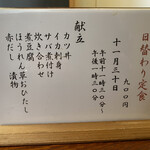 日替わり定食
九〇〇円
十一月三十日
午前十一時三〇分〜
午後一時三〇分
献立
カツ丼
イカ刺身
サバ煮付け
炊き合わせ
煮豆腐
ほうれん草おひたし
漬物
赤だし